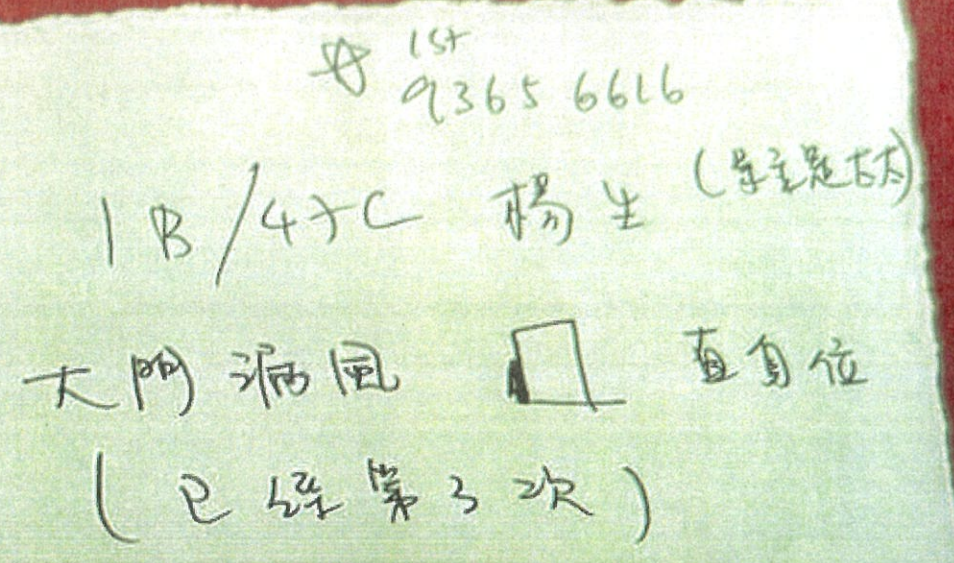 1st
9365 6616
1B/47C 楊生 (業主是太太)
大門漏風 直角位
(已經第3次)